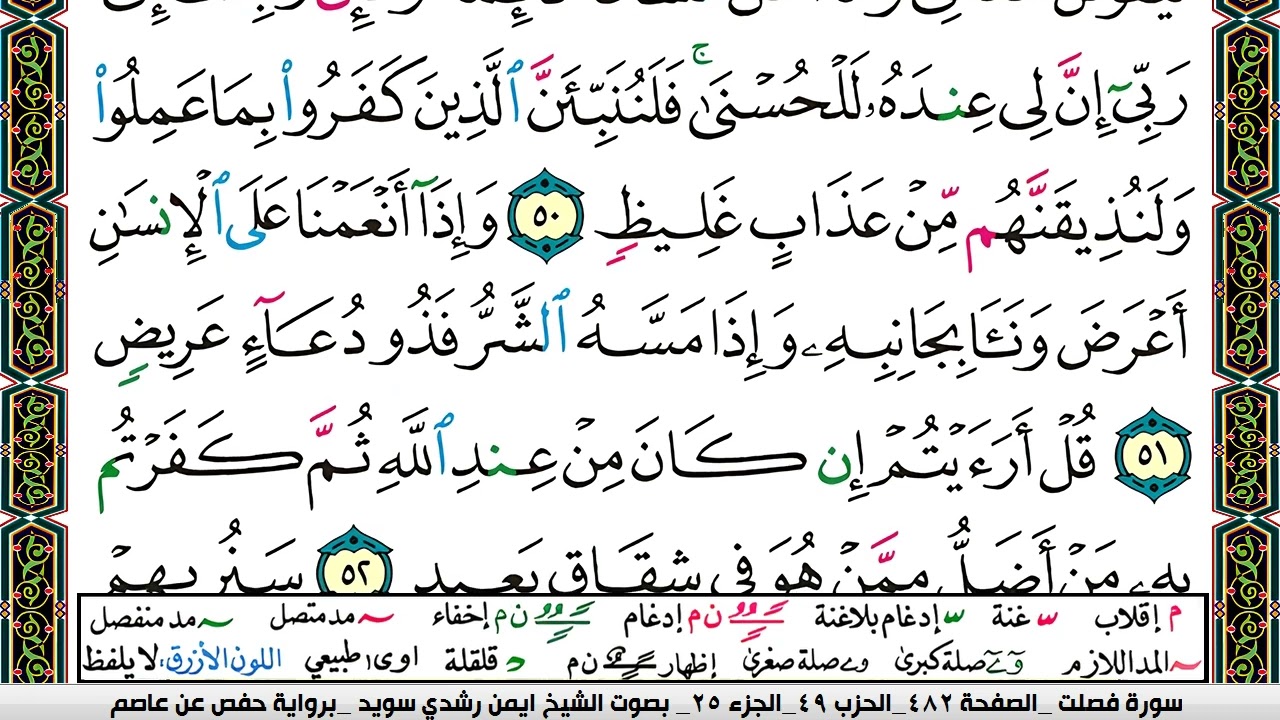 رَبِّىٓ إِنَّ لِى عِندَهُۥ لَلْحُسْنَىٰ ۚ فَلَنُنَبِّئَنَّ ٱلَّذِينَ كَفَرُوا۟ بِمَا عَمِلُوا۟
وَلَنُذِيقَنَّهُم مِّنْ عَذَابٍ غَلِيظٍ ٥٠ وَإِذَآ أَنْعَمْنَا عَلَى ٱلْإِنسَـٰنِ
أَعْرَضَ وَنَـَٔا بِجَانِبِهِۦ وَإِذَا مَسَّهُ ٱلشَّرُّ فَذُو دُعَآءٍ عَرِيضٍ
٥١ قُلْ أَرَءَيْتُمْ إِن كَانَ مِنْ عِندِ ٱللَّهِ ثُمَّ كَفَرْتُم
بِهِۦ مَنْ أَضَلُّ مِمَّنْ هُوَ فِى شِقَاقٍۭ بَعِيدٍ ٥٢ سَنُرِيهِمْ
م إقلاب س غنة س إدغام بلاغنة ن م إدغام ن م إخفاء ~ مد متصل ~ مد منفصل
~ المد اللازم و ے صلة كبرى و ے صلة صغرى إظهار ن م د قلقلة ا و ى طبيعي اللون الأزرق، لا يلفظ
سورة فصلت _الصفحة ٤٨٢_الحزب ٤٩_الجزء ٢٥_ بصوت الشيخ ايمن رشدي سويد _برواية حفص عن عاصم